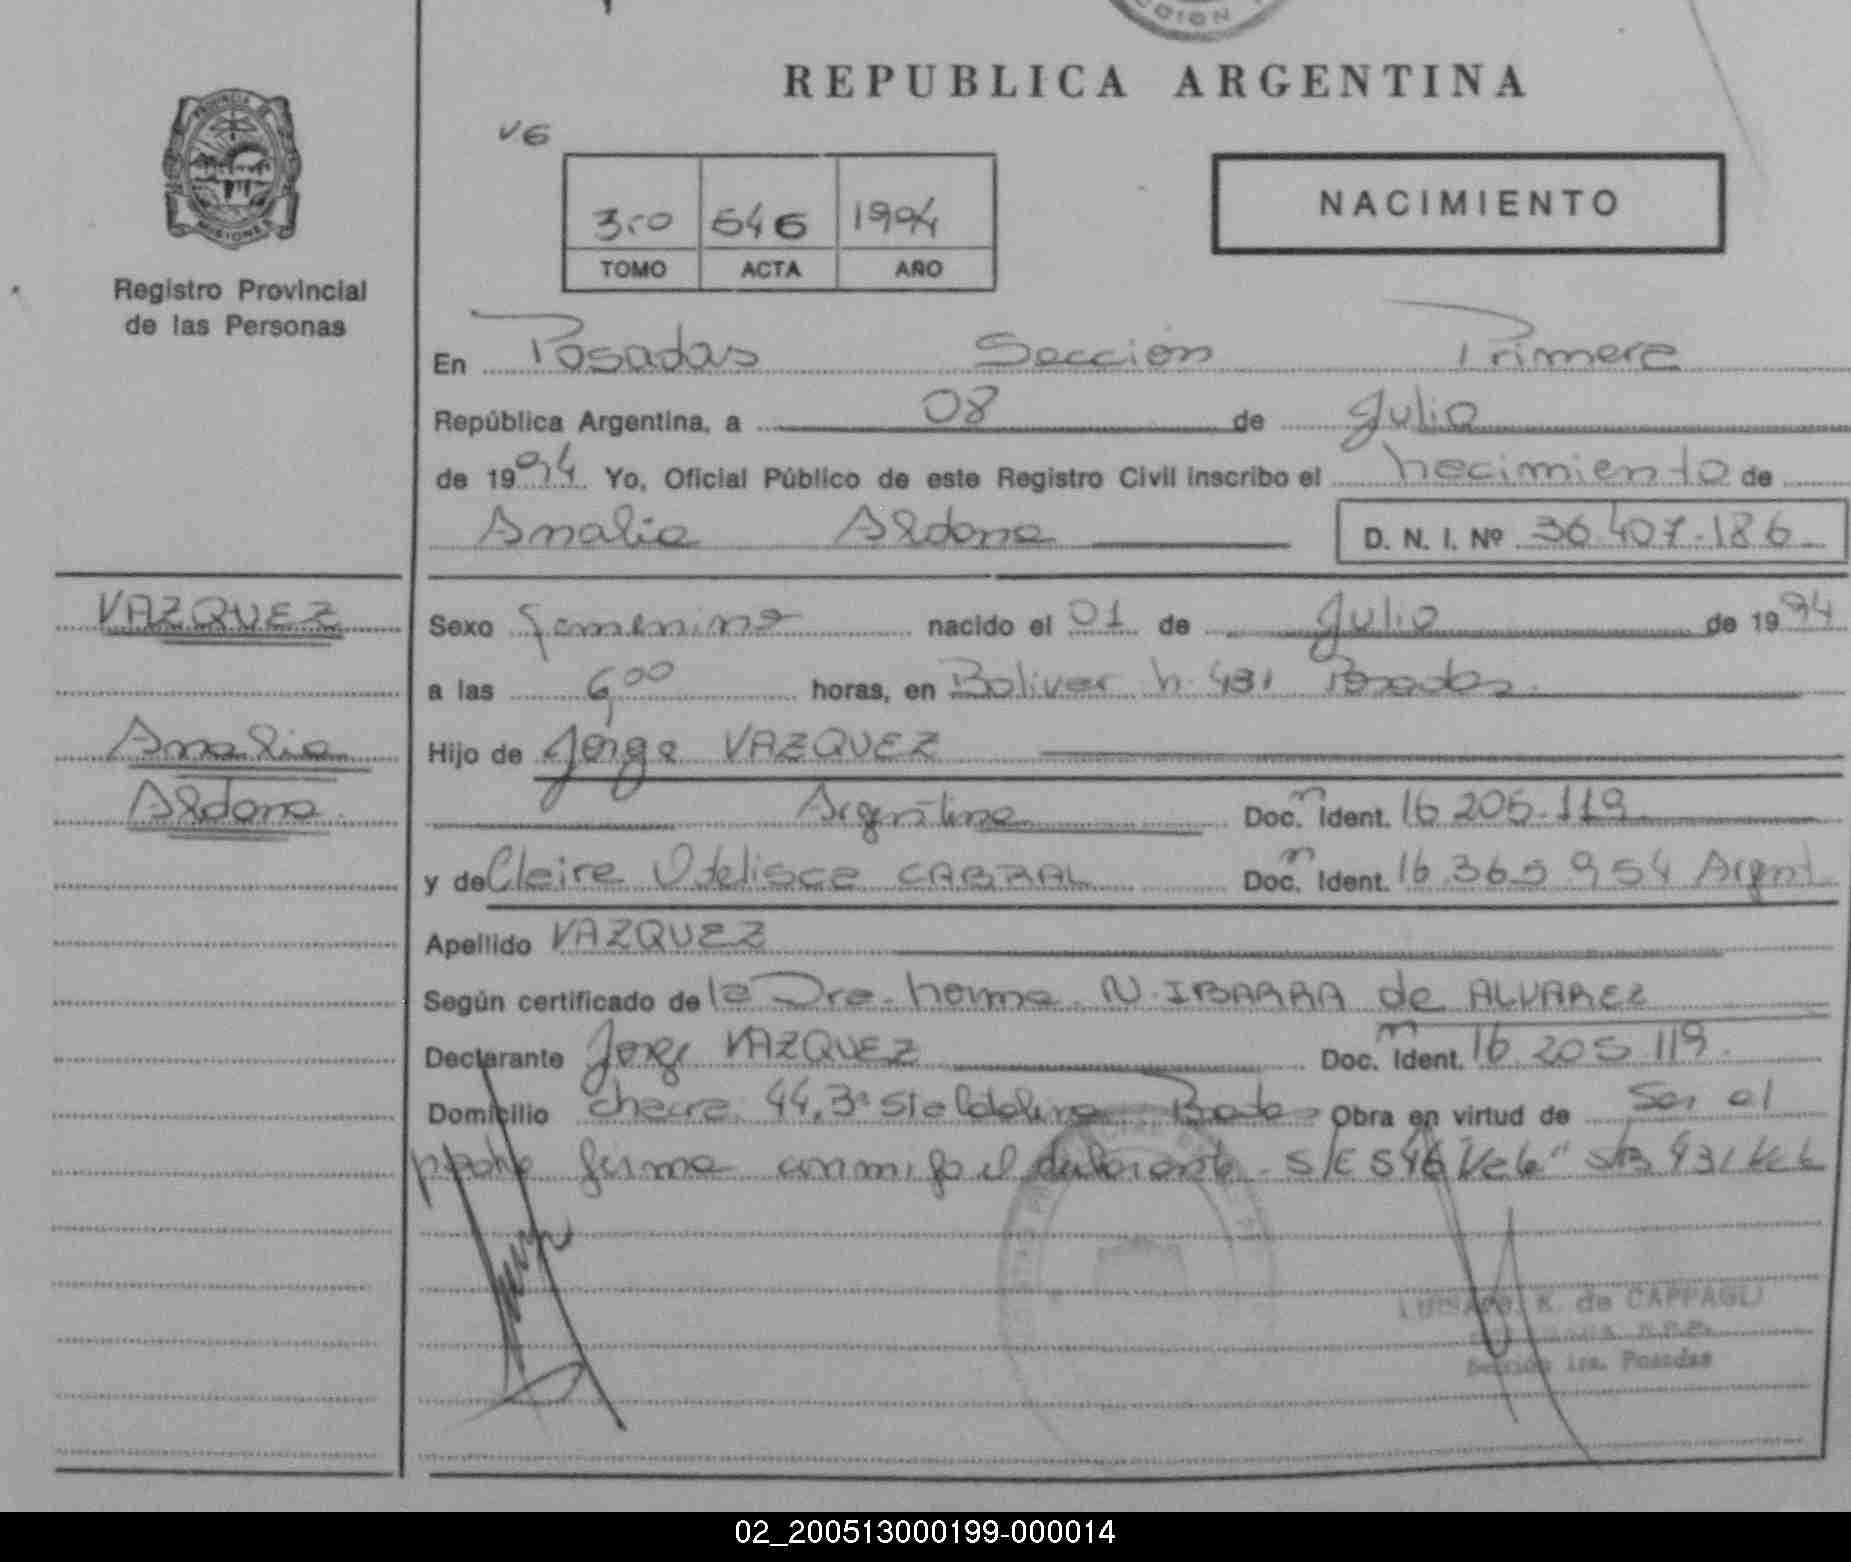 CCION
REPUBLICA ARGENTINA
V6
3ro 546 1994
TOMO ACTA AÑO
NACIMIENTO
PROVINCIA DE MISIONES
Registro Provincial
de las Personas
En Posadas Seccion Primera
República Argentina, a 08 de Julio
de 1994 Yo, Oficial Público de este Registro Civil inscribo el nacimiento de
Analia Aldana D. N. I. Nº 36.407.186
VAZQUEZ
Analia
Aldana
Sexo femenino nacido el 01 de Julio de 1994
a las 6,00 horas, en Bolivar n. 431 Posadas
Hijo de Jorge VAZQUEZ
Argentino Doc. Ident. 16 205.119
y de Claire CABRAL Doc. Ident. 16.365 954 Argent
Apellido VAZQUEZ
Según certificado de la Dra. Norma N. IBARRA de ALVAREZ
Declarante Jorge VAZQUEZ Doc. Ident. 16 205 119.
Domicilio chacra 44, Obra en virtud de Ser el
padre firma conmigo el declarante. S/E 546
de CAPPAGLI
Sección 1ra. Posadas
02_200513000199-000014